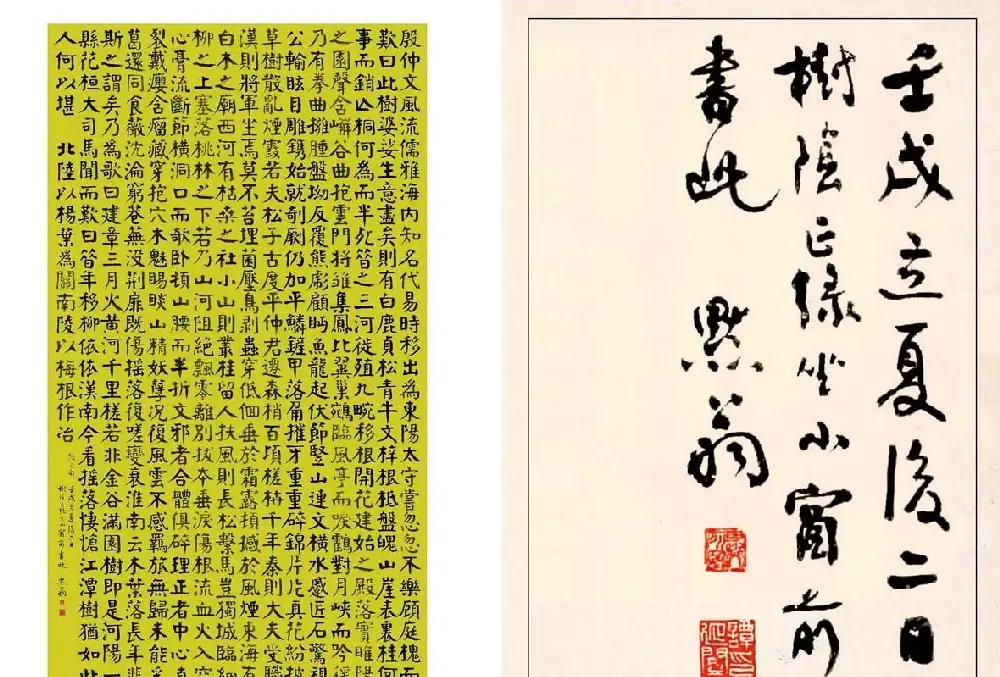 殷仲文風流儒雅海內知名代易時移出為東陽太守嘗忽忽不樂顧庭槐而
歎曰此樹婆娑生意盡矣則有白鹿貞松青牛文梓根柢盤魄山崖表裏桂何
事而銷亾桐何為而半死昔之三河徙殖九畹移根開花建始之殿落實睢陽
之園聲含嶰谷曲抱雲門將雛集鳳比翼巢鵷臨風亭而唳鶴對月峽而吟猨
乃有拳曲擁腫盤坳反覆熊彪顧盼魚龍起伏節豎山連文橫水蹙匠石驚視
公輸眩目雕鐫始就剞劂仍加平鱗鏟甲落角摧牙重重碎錦片片真花紛披
草樹散亂煙霞若夫松子古度平仲君遷森梢百頃槎枿千年秦則大夫受職
漢則將軍坐焉莫不苔埋菌壓鳥剝蟲穿低佪垂於霜露頓撼於風煙東海有
白木之廟西河有枯桑之社小山則叢桂留人扶風則長松繫馬豈獨城臨細
柳之上塞落桃林之下若乃山河阻絕飄零離別拔本垂淚傷根流血火入空
心膏流斷節橫洞口而欹臥頓山腰而半折文邪者合體俱碎理正者中心直
裂戴癭含瘤藏穿抱穴木魅睗睒山精妖孽況復風雲不感羈旅無歸未能采
葛還同食薇沈淪窮巷蕪沒荊扉既傷搖落復嗟變衰淮南云木葉落長年悲
斯之謂矣乃為歌曰建章三月火黃河千里槎若非金谷滿園樹即是河陽一
縣花桓大司馬聞而歎曰昔年移柳依依漢南今看搖落悽愴江潭樹猶如此
人何以堪 北陸以楊葉為關南陵以梅根作冶
壬戌立夏後二日
樹陰正緣坐小窗前
書此 默翁